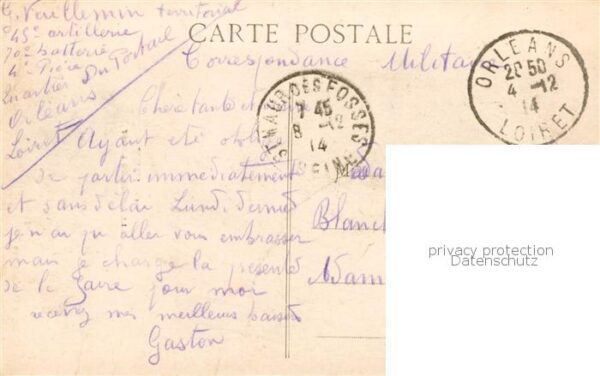 G. Vuillemin territorial
45e artillerie
70e batterie
4e Pièce
Quartier Du Portail
Orléans
Loiret
CARTE POSTALE
Correspondance Militaire
ORLEANS
20 50
4 -12
14
LOIRET
ST MAUR DES FOSSES
7 45
8 -12
14
SEINE
Chère tante et
Ayant été obligé
de partir immédiatement
et sans délai Lundi dernier
je n'ai pu aller vous embrasser
mais je charge la présente
de le faire pour moi
recevez mes meilleurs baisers
Gaston
Blanch
Adam
privacy protection
Datenschutz